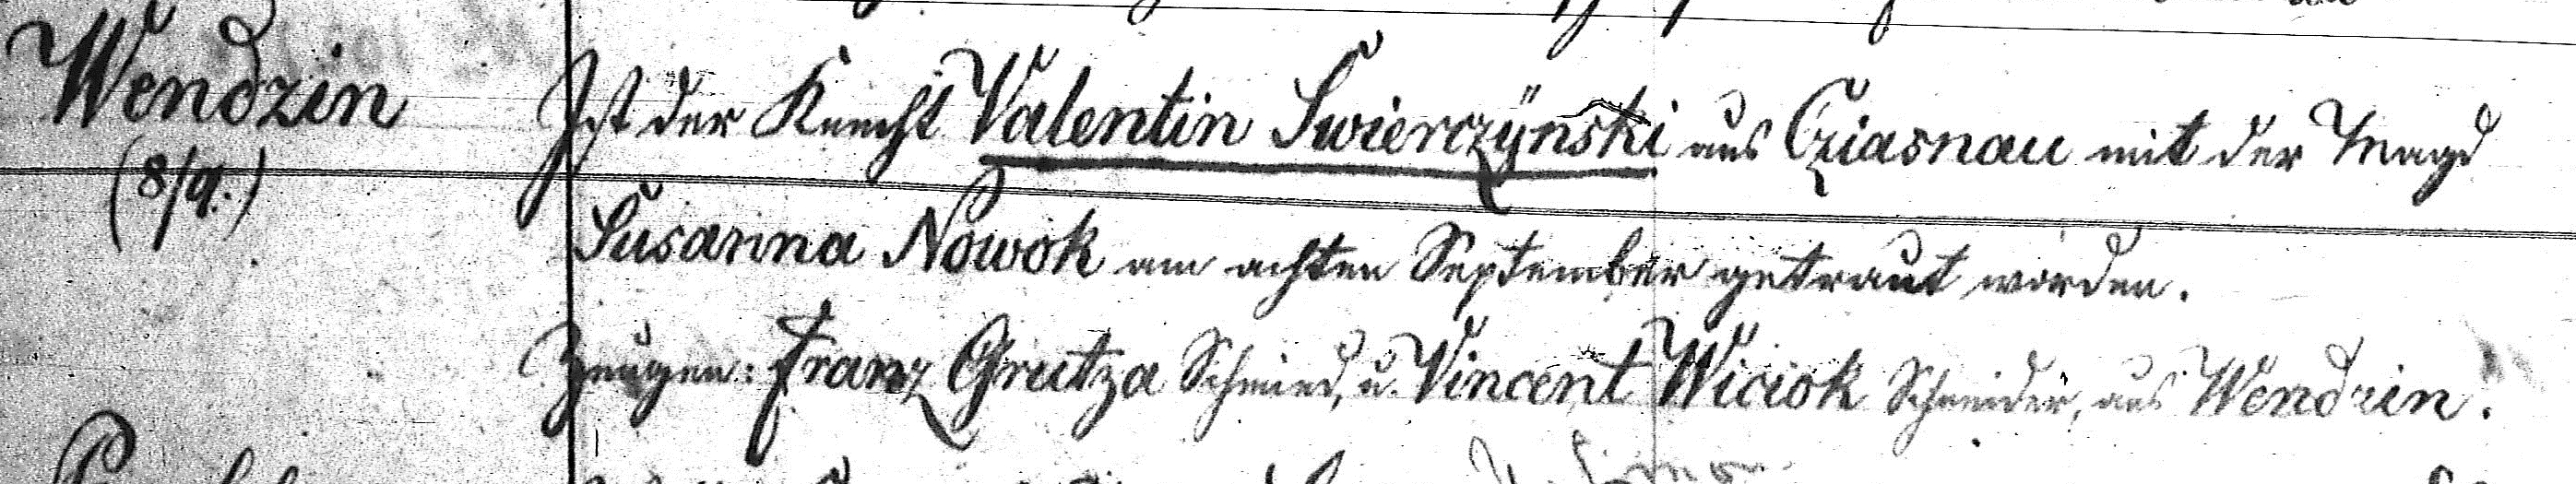 Wendzin
(8/9.)
Ist der Knecht Valentin Swierczÿnski aus Cziasnau mit der Magd
Susanna Nowok am achten September getraut worden.
Zeugen: Franz Grutza Schmied, u. Vincent Wiciok Schneider, aus Wendzin.